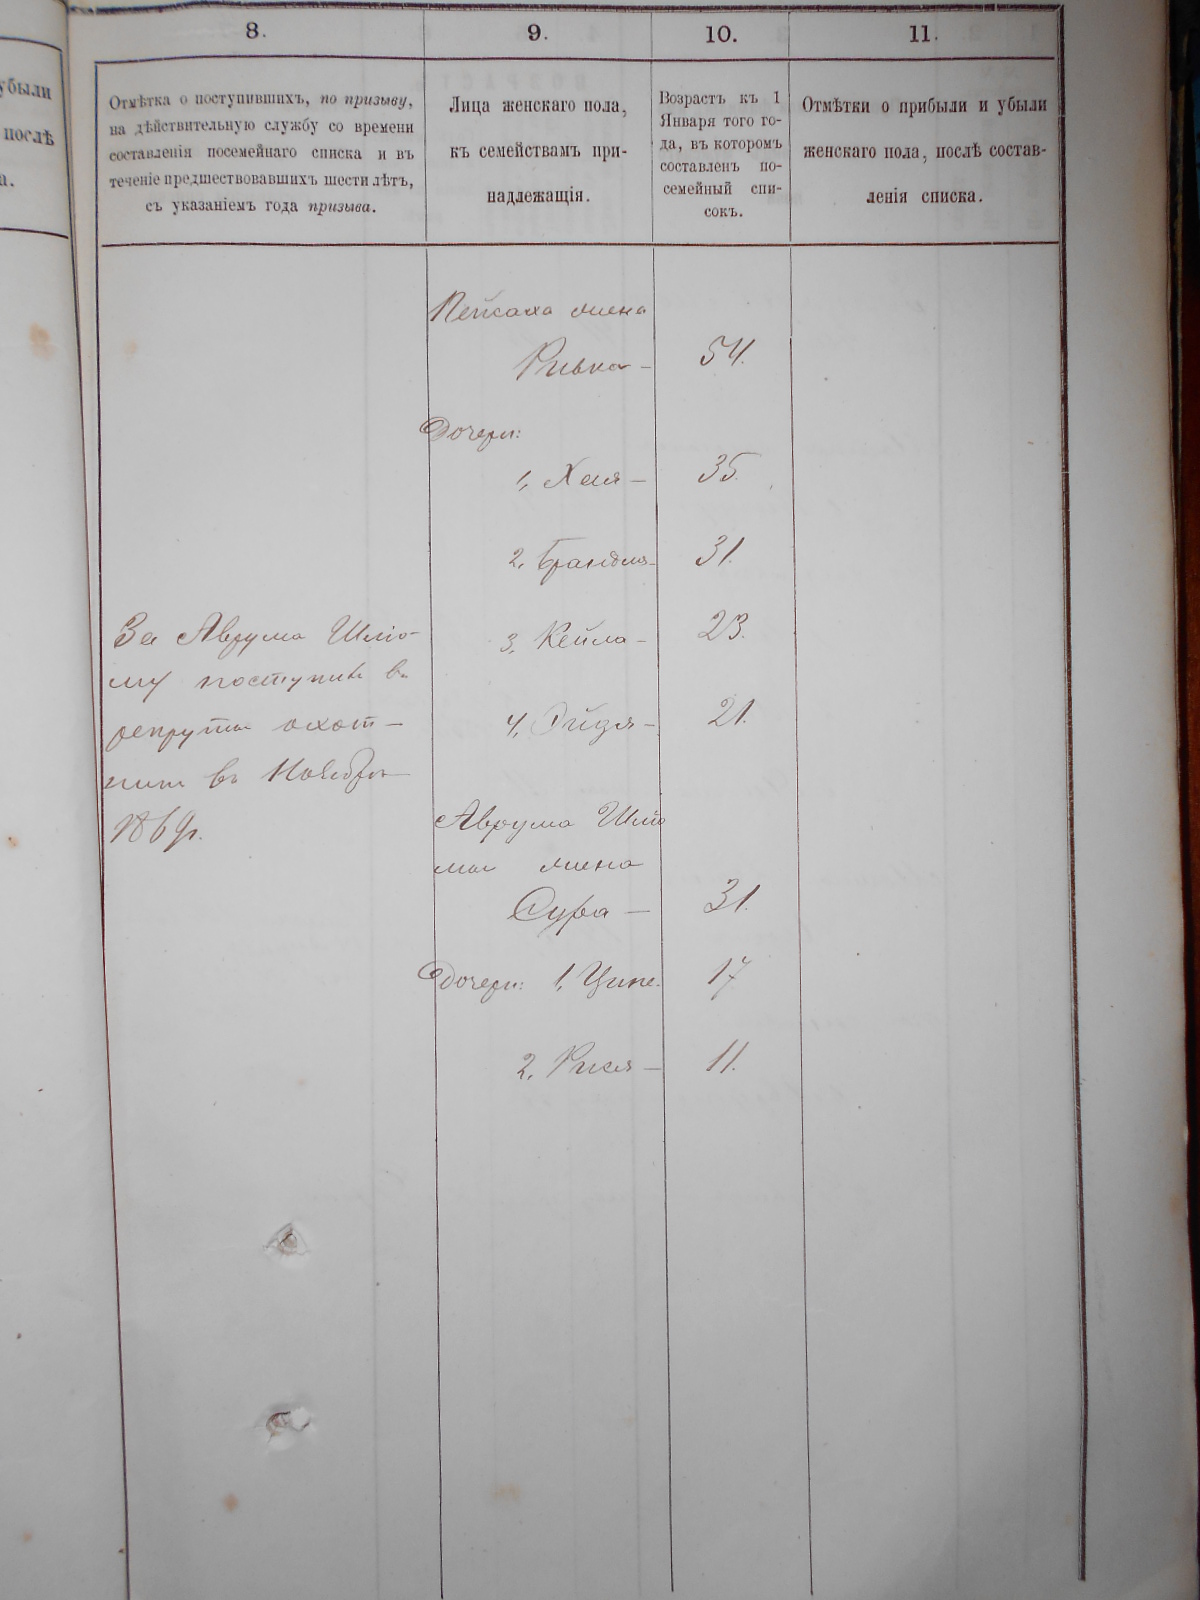 убыли
послѣ
а.
8.
9.
10.
11.
Отмѣтка о поступившихъ, по призыву,
на дѣйствительную службу со времени
составленія посемейнаго списка и въ
теченіе предшествовавшихъ шести лѣтъ,
съ указаніемъ года призыва.
Лица женскаго пола,
къ семействамъ при-
надлежащія.
Возрастъ къ 1
Января того го-
да, въ которомъ
составленъ по-
семейный спи-
сокъ.
Отмѣтки о прибыли и убыли
женскаго пола, послѣ состав-
ленія списка.
Пейсаха жена
Ривка — 54.
Дочери:
1, Хая — 35.
2, Брандля 31.
3, Кейла — 23.
4, Эйдзя — 21.
За Аврума Шлио-
му поступил въ
рекруты охот-
ник въ Ноябрѣ
1869г.
Аврума Шлио
мы жена
Сура — 31.
Дочери: 1, Ципе. 17
2, Рися — 11.